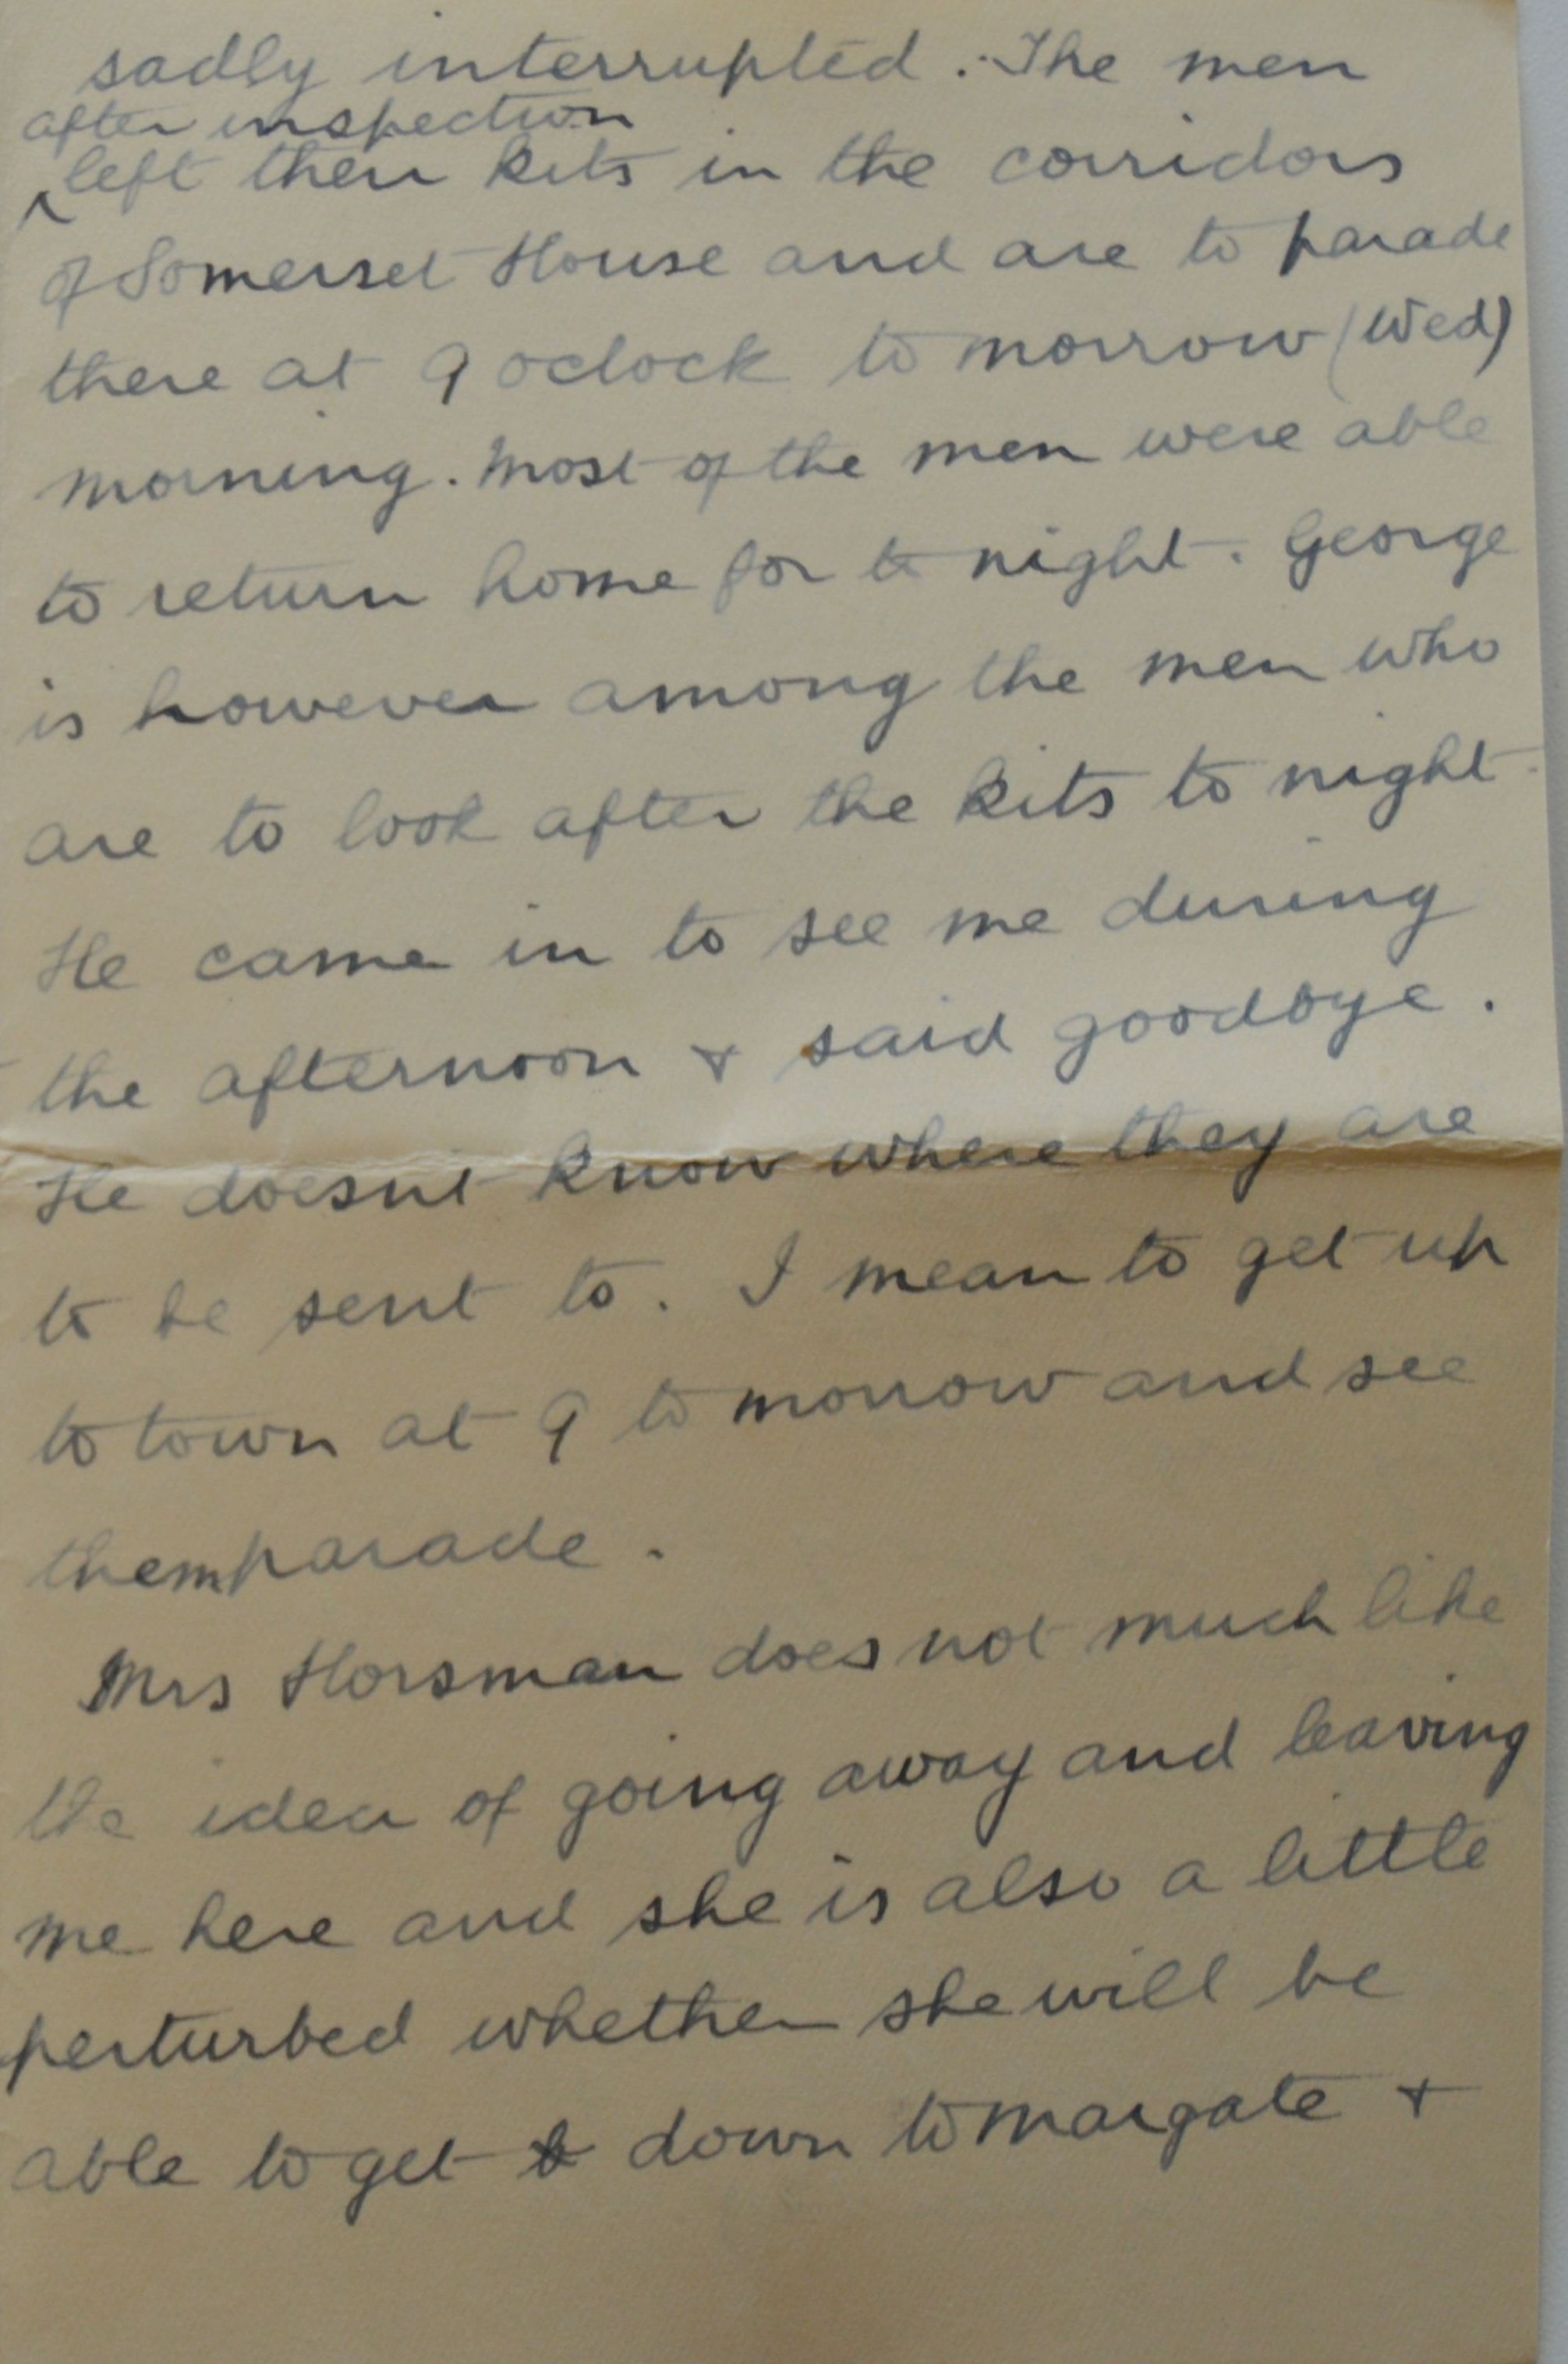 sadly interrupted. The men
after inspection
left their kits in the corridors
of Somerset House and are to parade
there at 9 oclock to morrow (Wed)
morning. Most of the men were able
to return home for to night. George
is however among the men who
are to look after the kits to night.
He came in to see me during
the afternoon + said goodbye.
He doesnt know where they are
to be sent to. I mean to get up
to town at 9 to morrow and see
them parade.
Mrs Horsman does not much like
the idea of going away and leaving
me here and she is also a little
perturbed whether she will be
able to get down to Margate +